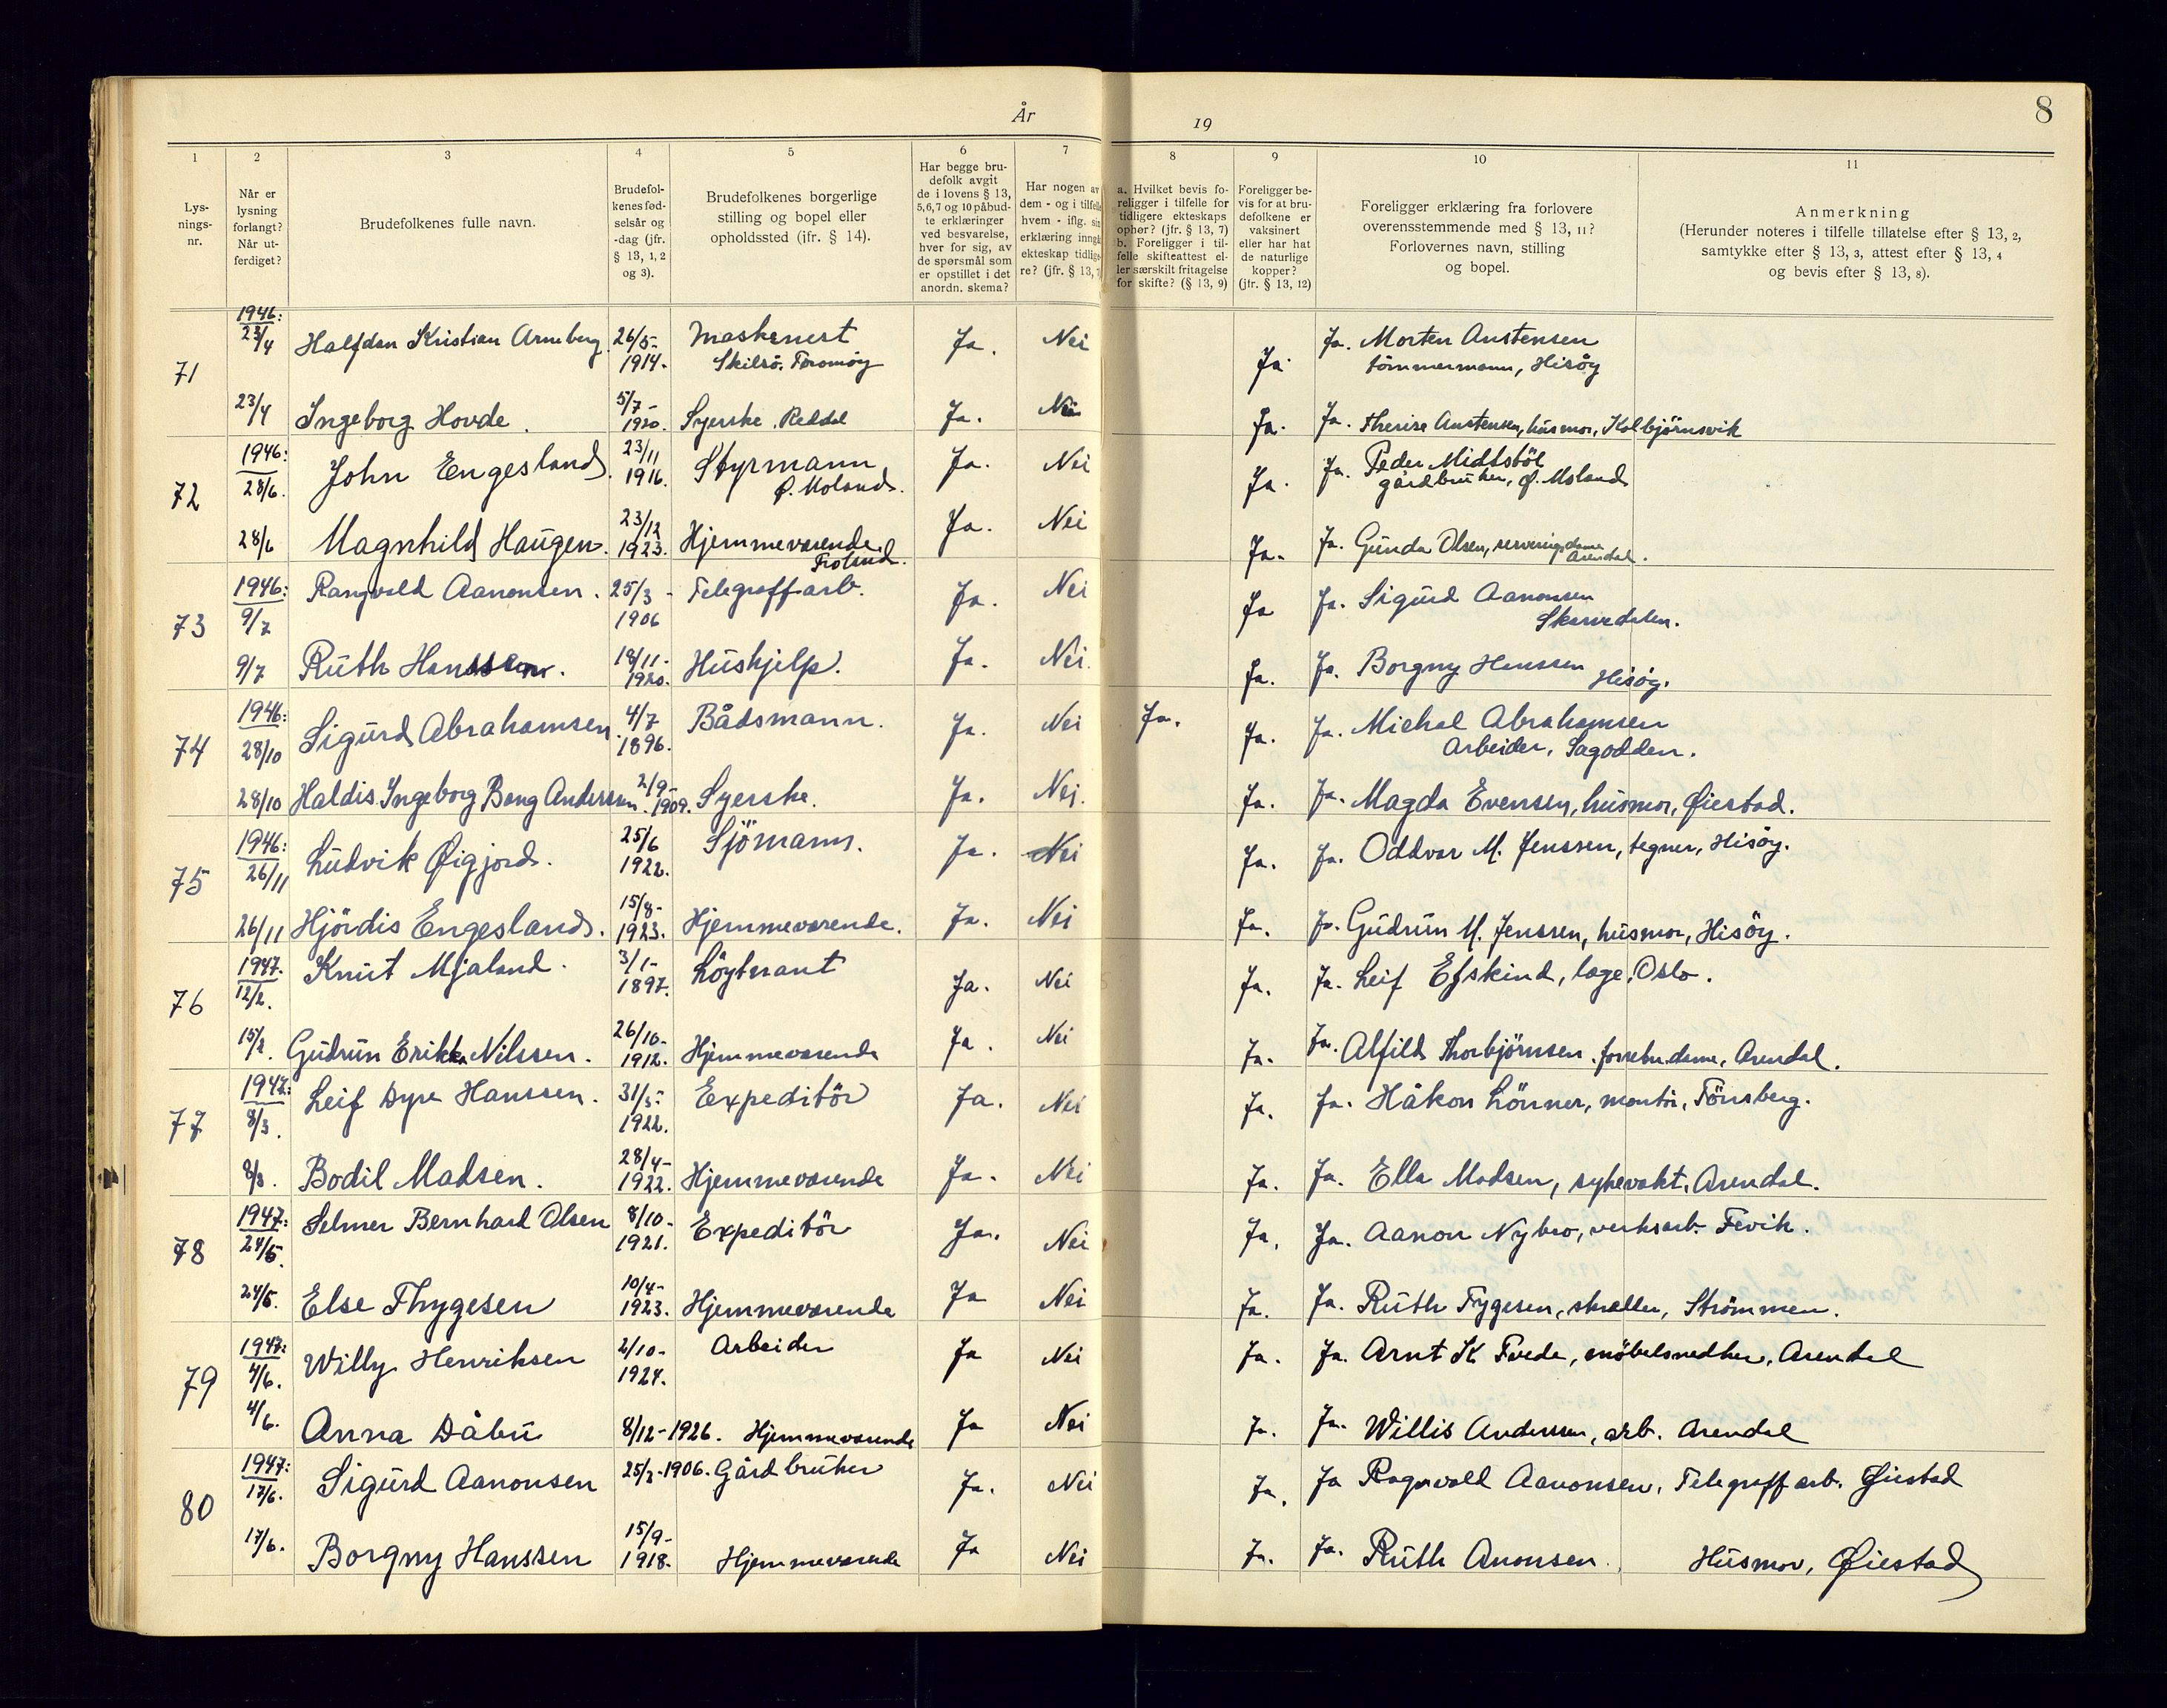 År
19
8
1
2
3
4
5
6
7
8
9
10
11
Lys-
nings-
nr.
Når er
lysning
forlangt?
Når ut-
ferdiget?
Brudefolkenes fulle navn.
Brudefol-
kenes fød-
selsår og
-dag (jfr.
§ 13, 1, 2
og 3).
Brudefolkenes borgerlige
stilling og bopel eller
opholdssted (jfr. § 14).
Har begge bru-
defolk avgit
de i lovens § 13,
5,6,7 og 10 påbud-
te erklæringer
ved besvarelse,
hver for sig, av
de spørsmål som
er opstillet i det
anordn. skema?
Har nogen av
dem - og i tilfelle
hvem - iflg. sin
erklæring inngå
ekteskap tidlige-
re? (jfr. § 13, 7
a. Hvilket bevis fo-
religger i tilfelle for
tidligere ekteskaps
ophør? (jfr. § 13, 7)
b. Foreligger i til-
felle skifteattest el-
ler særskilt fritagelse
for skifte? (§ 13, 9)
Foreligger be-
vis for at bru-
defolkene er
vaksinert
eller har hat
de naturlige
kopper?
(jfr. § 13, 12)
Foreligger erklæring fra forlovere
overensstemmende med § 13, 11?
Forlovernes navn, stilling
og bopel.
Anmerkning
(Herunder noteres i tilfelle tillatelse efter § 13, 2,
samtykke efter § 13, 3, attest efter § 13, 4
og bevis efter § 13, 8).
71 1946: 23/4 Halfdan Kristian Arneberg 26/5- 1914. Maskinist Skilsö. Tromöy Ja. Nei Ja. Ja. Morten Austensen
tömmermann, Hisöy
23/4 Ingeborg Hovde. 5/7- 1920. Syerske. Reddal Ja. Nei Ja. Ja. Therise Austensen, husmor, Kolbjörnsvik
72 1946: 28/6. John Engesland. 23/11 1916. Styrmann, Ø. Moland. Ja. Nei Ja. Ja. Peder Midtstöl
gårdbruker, Ø. Moland
28/6 Magnhild Haugen. 23/12 1923. Hjemmeværende. Froland. Ja. Nei Ja. Ja. Gunda Olsen, serveringsdame Arendal.
73 1946: 9/7 Rangvald Aanonsen. 25/3- 1906 Telegraffarb. Ja. Nei Ja Ja. Sigurd Aanonsen
Skarvedalen.
9/7 Ruth Hanssen. 18/11- 1920. Hushjelp. Ja. Nei. Ja. Ja. Borgny Hanssen Hisöy.
74 1946: 28/10 Sigurd Abrahamsen 4/7 1896. Bådsmann. Ja. Nei Ja. Ja. Ja. Michal Abrahamsen
Arbeider, Sagodden.
28/10 Haldis Ingeborg Bang Anderssen 2/9- 1909. Syerske. Ja. Nei. Ja. Ja. Magda Evensen, husmor, Øiestad.
75 1946: 26/11 Ludvik Øigjord. 25/6 1922. Sjömann. Ja. Nei Ja. Ja. Oddvar M. Jenssen, tegner, Hisöy.
26/11 Hjördis Engesland. 15/8- 1923. Hjemmeværende. Ja. Nei Ja. Ja. Gudrun M. Jenssen, husmor, Hisöy.
76 1947. 12/2. Knut Mjaland. 3/1- 1897. Löytnant Ja. Nei Ja. Ja. Leif Efskind, læge, Oslo.
15/2. Gudrun Erikka Nilssen. 26/10- 1912. Hjemmeværende Ja. Nei Ja. Ja. Alfild Thorbjörnsen. Arendal.
77 1947: 8/3. Leif Dyre Hanssen. 31/5- 1922. Expeditör Ja. Nei Ja. Ja. Håkon Lönner, montör, Tönsberg.
8/3. Bodil Madsen. 28/4- 1922. Hjemmeværende Ja. Nei Ja. Ja. Ella Madsen, sykevakt, Arendal.
78 1947: 24/5. Selmer Bernhard Olsen 8/10- 1921. Expeditör Ja. Nei Ja. Ja. Aanon Nybro, verksarb. Fevik.
24/5. Else Thygesen 10/4- 1923. Hjemmeværende Ja Nei Ja. Ja. Ruth Tygesen, Strömmen.
79 1947: 4/6. Willy Henriksen 2/10- 1924. Arbeider Ja Nei Ja. Ja. Arnt K Tvede, möbelsnedker, Arendal
4/6. Anna Dåbu 8/12-1926. Hjemmeværende Ja Nei Ja. Ja. Willis Anderssen, arb. Arendal
80 1947: 17/6. Sigurd Aanonsen 25/2-1906. Gårdbruker Ja. Nei Ja. Ja Ragnvald Aanonsen, Telegraffarb. Øiestad
17/6. Borgny Hanssen 15/9- 1918. Hjemmeværende Ja Nei Ja. Ja. Ruth Anonsen. Husmor, Øiestad